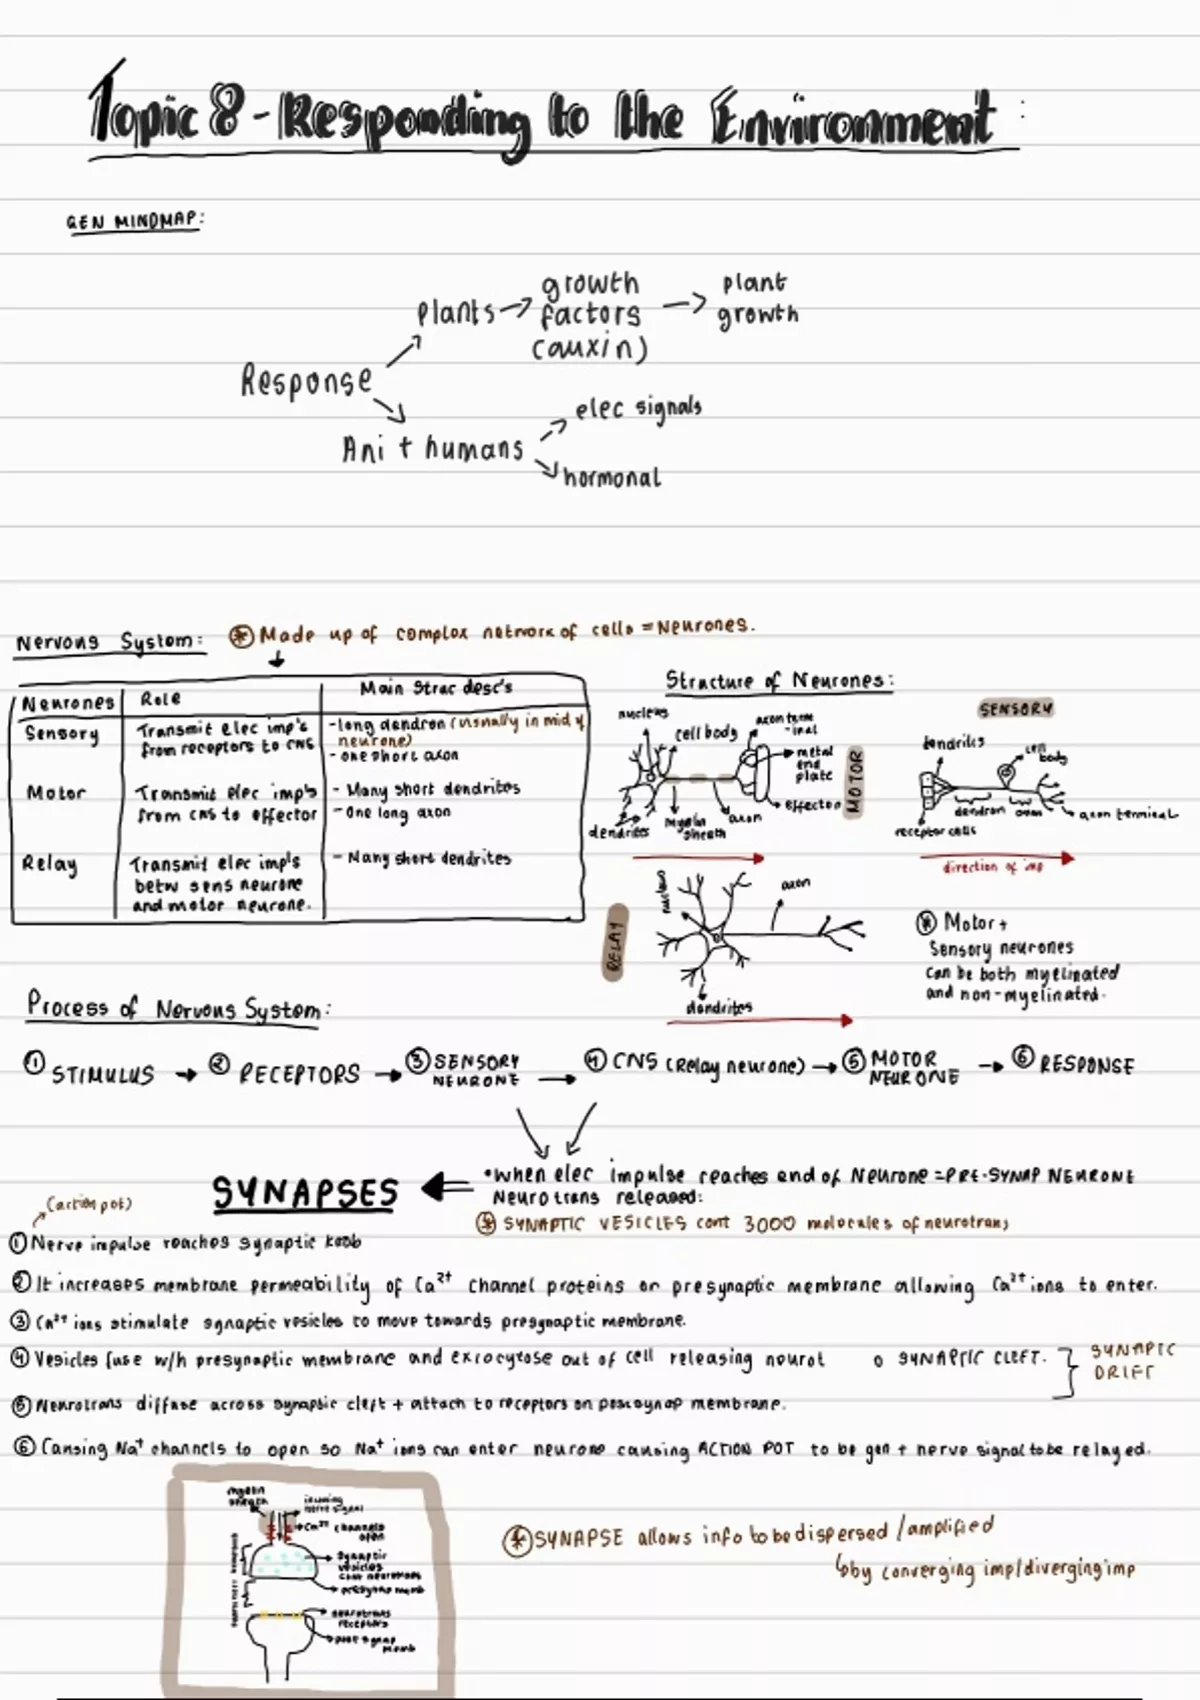 Topic 8 - Responding to the Environment:
GEN MINDMAP:
Response
Plants → growth factors (auxin) → plant growth
Ani + humans
elec signals
hormonal
Nervous System:
⊛ Made up of complex network of cells = Neurones.
Neurones | Role | Main Struc desc's
Sensory | Transmit elec imp's from receptors to CNS | - long dendron (usually in mid of neurone)
- one short axon
Motor | Transmit elec imp's from CNS to effector | - Many short dendrites
- One long axon
Relay | Transmit elec imp's betw sens neurone and motor neurone. | - Many short dendrites
Structure of Neurones:
nucleus
cell body
axon terminal
metal end plate
effector
dendrites
myelin sheath
axon
MOTOR
SENSORY
dendrites
cell body
dendron
axon
axon terminal
receptor cells
direction of imp
RELAY
nucleus
axon
dendrites
⊛ Motor +
Sensory neurones
can be both myelinated
and non-myelinated.
Process of Nervous System:
① STIMULUS → ② RECEPTORS → ③ SENSORY NEURONE → ④ CNS (Relay neurone) → ⑤ MOTOR NEURONE → ⑥ RESPONSE
SYNAPSES
• When elec impulse reaches end of Neurone = PRE-SYNAP NEURONE
Neurotrans released:
⊛ SYNAPTIC VESICLES cont 3000 molecules of neurotrans
(action pot)
① Nerve impulse reaches synaptic knob
② It increases membrane permeability of Ca²⁺ channel proteins on presynaptic membrane allowing Ca²⁺ ions to enter.
③ Ca²⁺ ions stimulate synaptic vesicles to move towards presynaptic membrane.
④ Vesicles fuse w/h presynaptic membrane and exocytose out of cell releasing neurot o SYNAPTIC CLEFT.
SYNAPTIC
DRIFT
⑤ Neurotrans diffuse across synaptic cleft + attach to receptors on postsynap membrane.
⑥ Causing Na⁺ channels to open so Na⁺ ions can enter neurone causing ACTION POT to be gen + nerve signal to be relayed.
myelin sheath
incoming nerve signal
Ca²⁺ channels open
synaptic vesicles cont neurotrans
presynap memb
neurotrans receptors
post synap memb
⊛ SYNAPSE allows info to be dispersed / amplified
↳ by converging imp/diverging imp